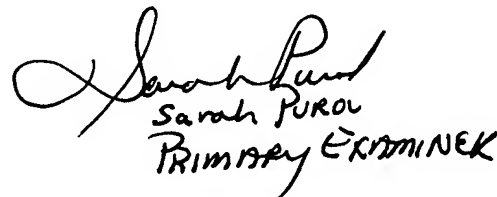 Sarah Purol
Sarah PUROL
PRIMARY EXAMINER